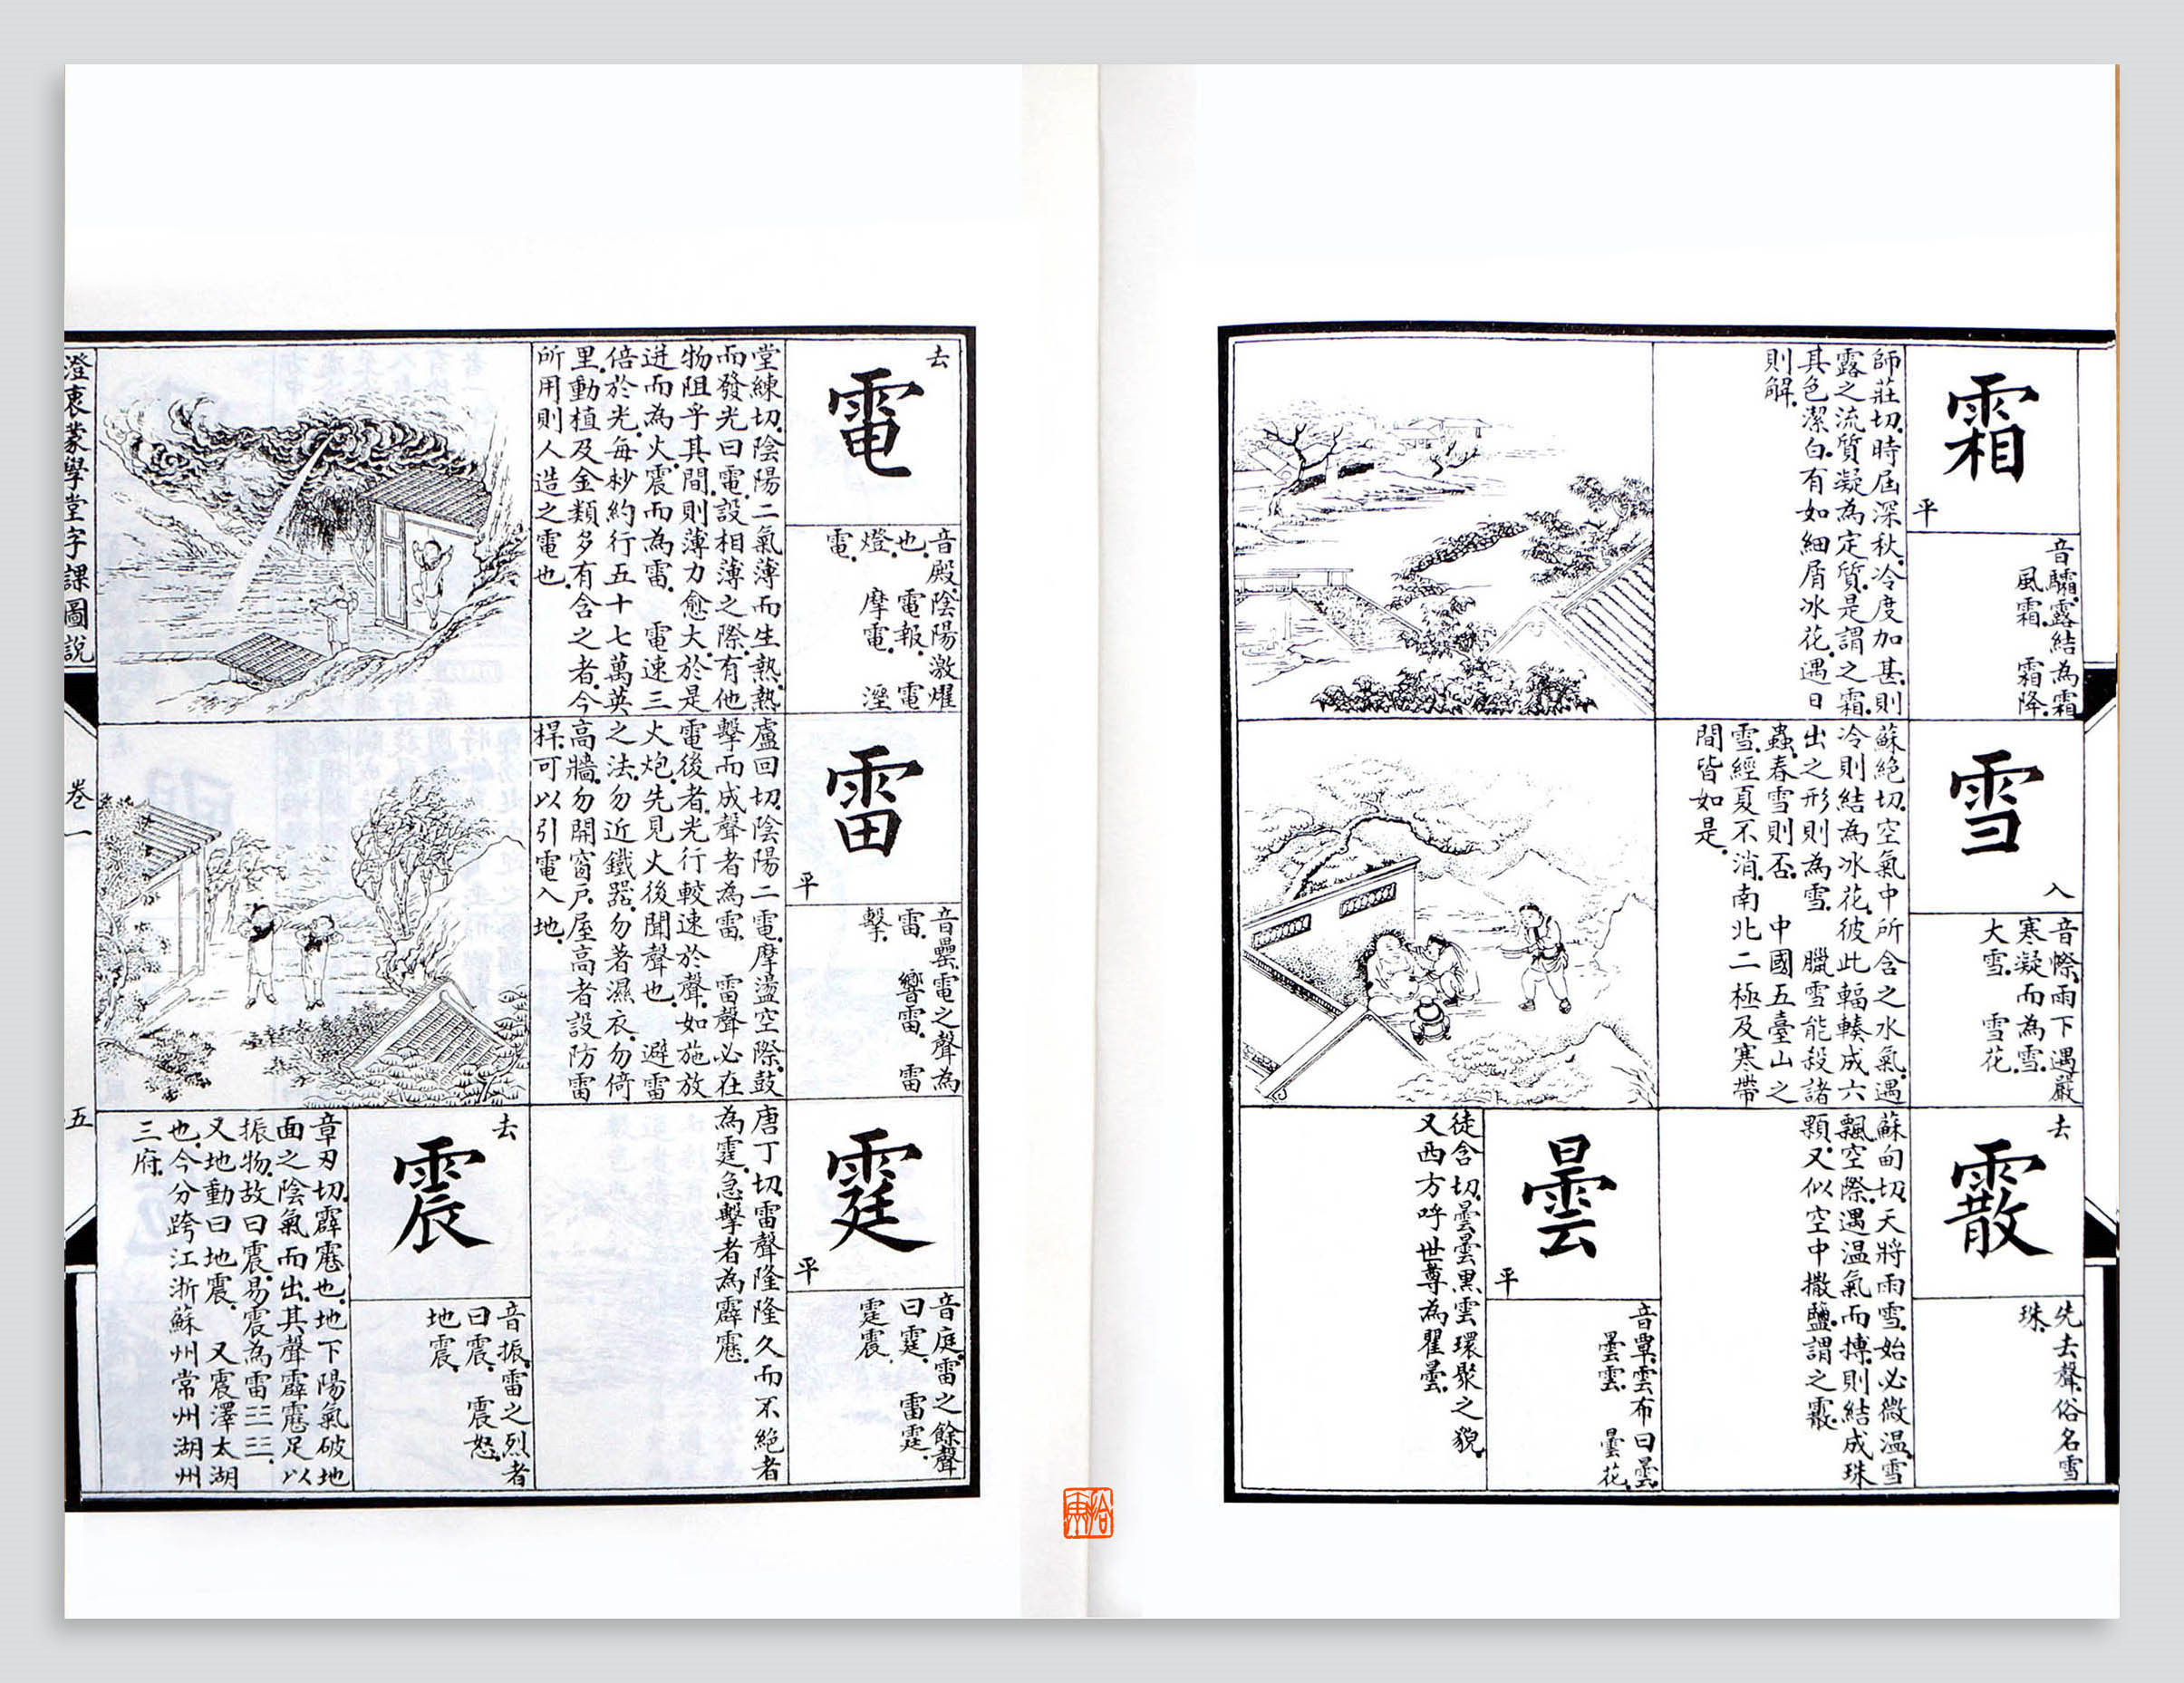 霜
平
音驦.露結為霜.
風霜.　霜降.
師莊切.時屆深秋.冷度加甚.則
露之流質.凝為定質.是謂之霜.
其色潔白.有如細屑冰花.遇日
則解.
雪
入
音㡜.雨下遇嚴
寒凝而為雪.
大雪.　雪花.
蘇絕切.空氣中所含之水氣.遇
冷則結為冰花.彼此輻輳成六
出之形則為雪.　臘雪能殺諸
蟲.春雪則否.　中國五臺山之
雪.經夏不消.南北二極及寒帶
間皆如是.
去
霰
先去聲.俗名雪
珠.
蘇甸切.天將雨雪.始必微溫.雪
飄空際.遇溫氣而摶.則結成珠
顆.又似空中撒鹽.謂之霰.
曇
平
音覃.雲布曰曇.
曇雲.　曇花.
徒含切.曇曇黑雲環聚之貌.
又西方呼世尊為瞿曇.
去
電
音殿.陰陽激燿
也.　電報.　電
燈.　摩電.　溼
電.
堂練切.陰陽二氣薄而生熱.熱
而發光曰電.設相薄之際.有他
物阻乎其間.則薄力愈大.於是
迸而為火.震而為雷.　電速三
倍於光.每秒約行五十七萬英
里.動植及金類多有含之者.今
所用則人造之電也.
雷
平
音罍.電之聲為
雷.　響雷.　雷
擊.
盧回切.陰陽二電.摩盪空際.鼓
擊而成聲者為雷.　雷聲必在
電後者.光行較速於聲.如施放
火炮.先見火後聞聲也.　避雷
之法.勿近鐵器.勿著濕衣.勿倚
高牆.勿開窗戶.屋高者設防雷
桿.可以引電入地.
霆
平
音庭.雷之餘聲
曰霆.　雷霆.
霆震.
唐丁切.雷聲隆隆久而不絕者
為霆.急擊者為霹靂.
去
震
音振.雷之烈者
曰震.　震怒.
地震.
章刃切.霹靂也.地下陽氣.破地
面之陰氣而出.其聲霹靂足以
振物.故曰震.易震為雷☳☳.
又地動曰地震.　又震澤太湖
也.今分跨江浙蘇州常州湖州
三府.
澄衷蒙學堂字課圖說
卷一
五